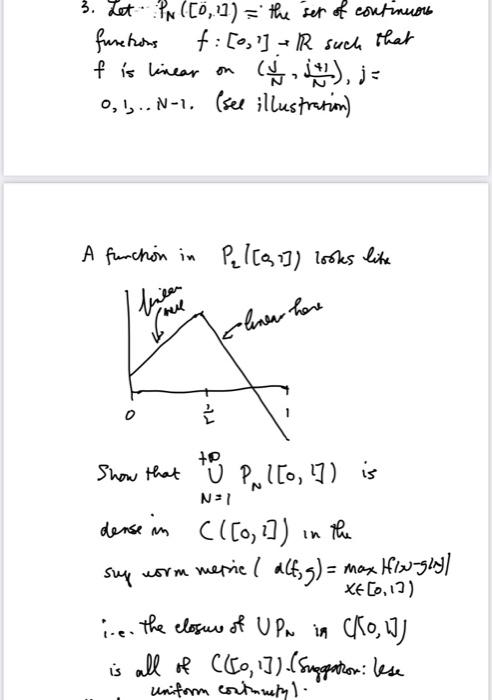 3. Let P_N([0,1]) = the set of continuous
functions f: [0,1] → ℝ such that
f is linear on (j/N, (j+1)/N), j =
0, 1, .. N-1. (see illustration)
A function in P_2([0,1]) looks like
linear
here
linear here
0
1/2
1
Show that ⋃_{N=1}^{+∞} P_N([0,1]) is
dense in C([0,1]) in the
sup norm metric ( d(f,g) = max |f(x)-g(x)|
x∈[0,1])
i.e. the closure of ∪P_N in C([0,1])
is all of C([0,1]). (Suggestion: Use
uniform continuity).